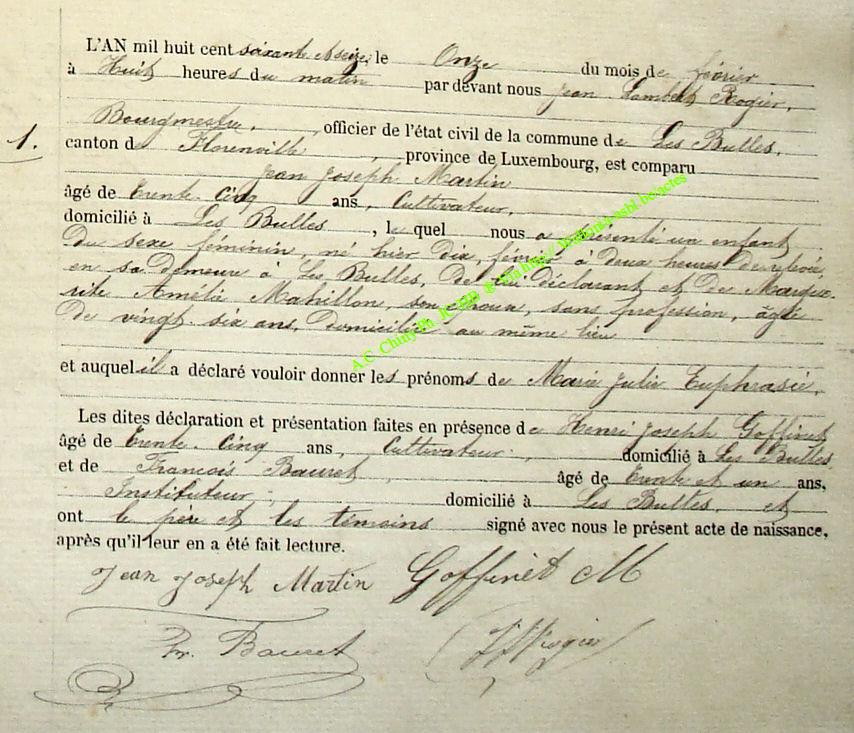 L'AN mil huit cent soixante et seize, le Onze du mois de février
à Huit heures du matin par devant nous Jean Lambert Rogier,
Bourgmestre, officier de l'état civil de la commune de Les Bulles,
1. canton de Florenville, province de Luxembourg, est comparu
Jean Joseph Martin
âgé de trente cinq ans, Cultivateur,
domicilié à Les Bulles, le quel nous a présenté un enfant
du sexe féminin, né hier dix, février à deux heures de relevée,
en sa demeure à Les Bulles, de lui déclarant et de Margue-
rite Amélie Mahillon, son épouse, sans profession, âgée
de vingt six ans, domiciliée au même lieu
et auquel il a déclaré vouloir donner les prénoms de Marie Julie Euphrasie.
Les dites déclaration et présentation faites en présence de Henri Joseph Goffinet
âgé de trente cinq ans, Cultivateur, domicilié à Les Bulles
et de François Bauret, âgé de trente et un ans,
Instituteur, domicilié à Les Bulles, et
ont le père et les témoins signé avec nous le présent acte de naissance,
après qu'il leur en a été fait lecture.
Jean Joseph Martin Goffinet
Fr. Bauret Rogier